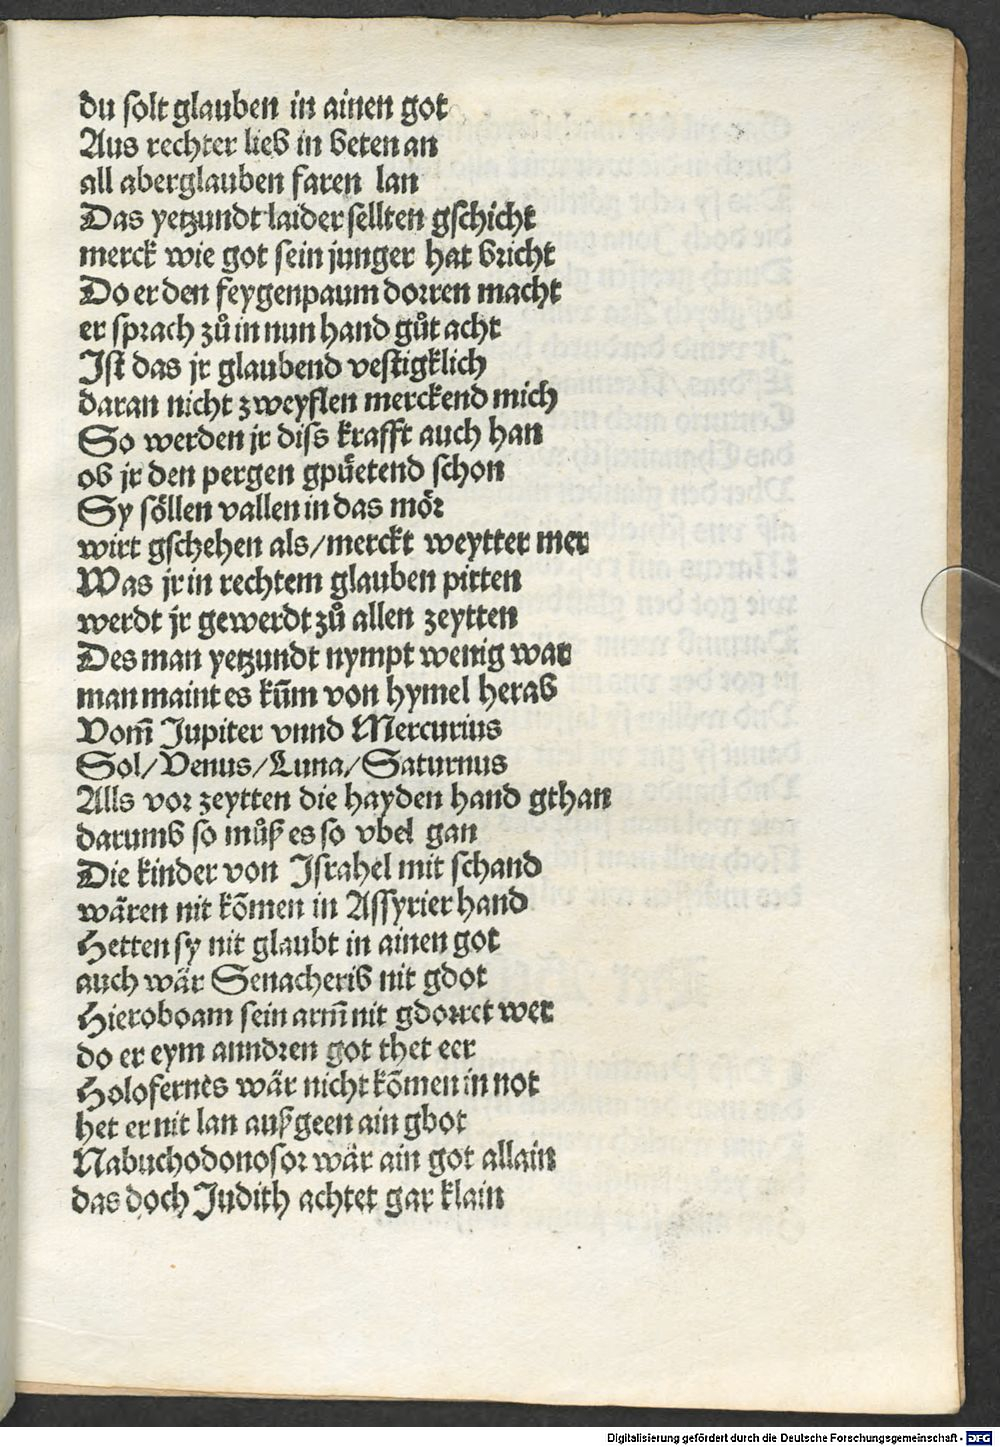 du solt glauben in ainen got
Aus rechter lieb in beten an
all aberglauben faren lan
Das yetzundt laider sellten gschicht
merck wie got sein junger hat bricht
Do er den feygenpaum dorren macht
er sprach zů in nun hand gůt acht
Ist das jr glaubend vestigklich
daran nicht zweyflen merckend mich
So werden jr diss krafft auch han
ob jr den pergen gpüetend schon
Sy söllen vallen in das mör
wirt gschehen als/merckt weytter mer
Was jr in rechtem glauben pitten
werdt jr gewerdt zů allen zeytten
Des man yetzundt nympt wenig war
man maint es kūm von hymel herab
Vom̄ Jupiter vnnd Mercurius
Sol/Venus/Luna/Saturnus
Alls vor zeytten die hayden hand gthan
darumb so můß es so vbel gan
Die kinder von Israhel mit schand
wären nit kōmen in Assyrier hand
Hetten sy nit glaubt in ainen got
auch wär Senacherib nit gdot
Hieroboam sein arm̄ nit gdorret wer
do er eym anndren got thet eer
Holofernes wär nicht kōmen in not
het er nit lan außgeen ain gbot
Nabuchodonosor wär ain got allain
das doch Judith achtet gar klain
Digitalisierung gefördert durch die Deutsche Forschungsgemeinschaft - DFG